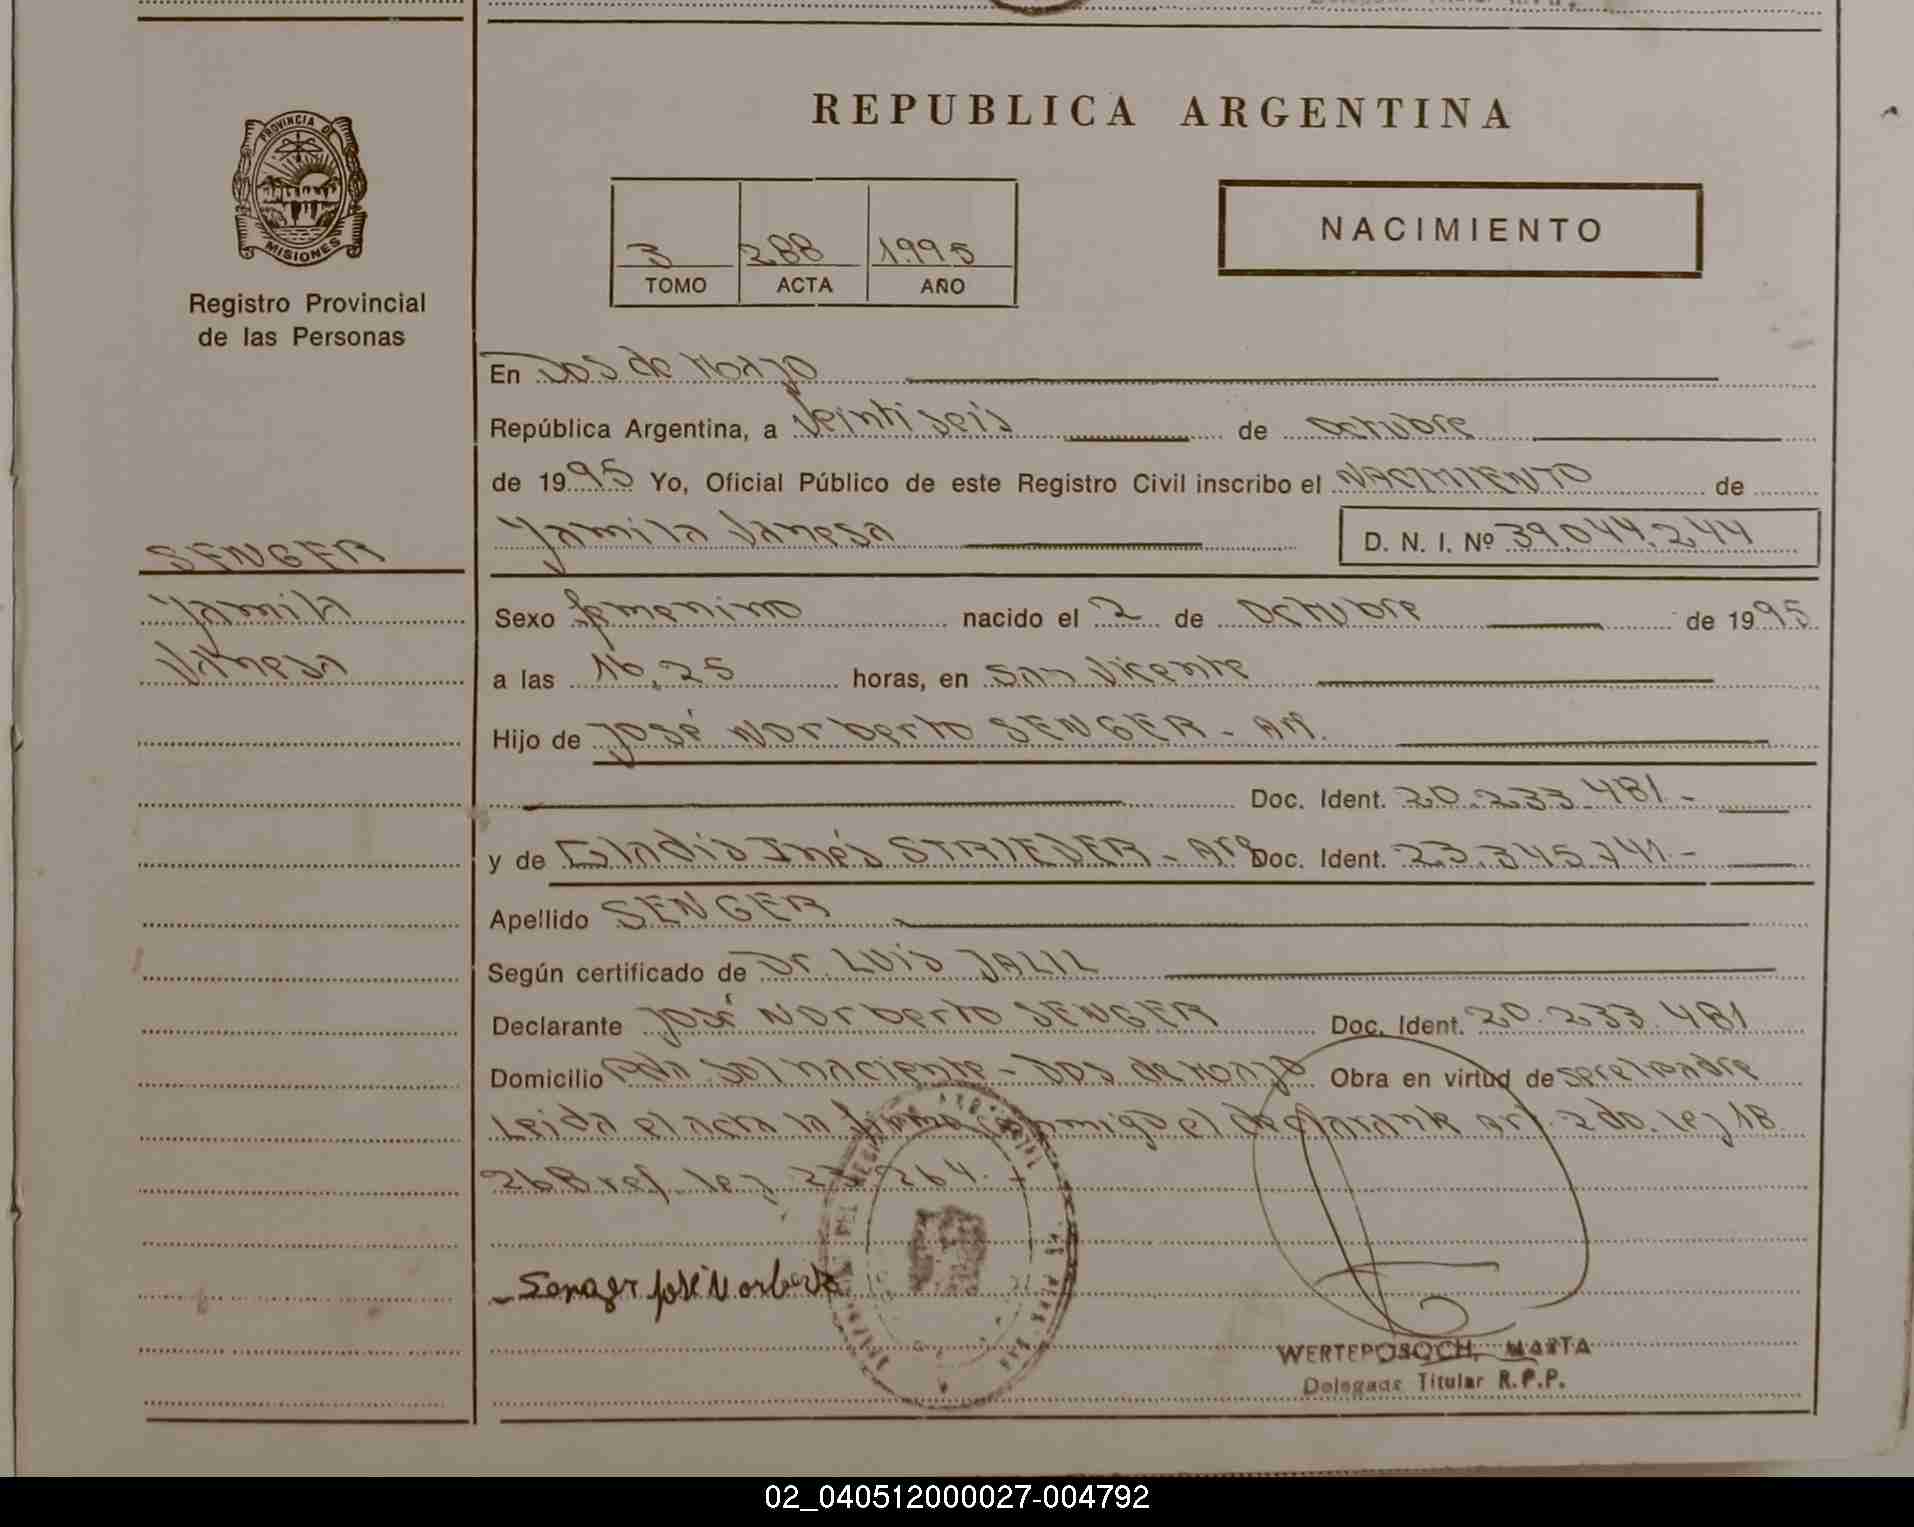 REPUBLICA ARGENTINA
PROVINCIA DE MISIONES
Registro Provincial
de las Personas
3 288 1995
TOMO ACTA AÑO
NACIMIENTO
En Dos de Mayo
República Argentina, a Veintiseis de Octubre
de 1995 Yo, Oficial Público de este Registro Civil inscribo el NACIMIENTO de
Yamila Vanesa D. N. I. Nº 39.044.244
SENGER
Yamila
Vanesa
Sexo femenino nacido el 2 de Octubre de 1995
a las 16,25 horas, en San Vicente
Hijo de José Norberto SENGER -
Doc. Ident. 20.233.481 -
y de Gladis Inés - Arg Doc. Ident. 23.345.741 -
Apellido SENGER
Según certificado de Dr. LUIS JALIL
Declarante José Norberto SENGER Doc. Ident. 20.233.481
Domicilio Pda Sol naciente - Dos de Mayo Obra en virtud de ser el padre
Leida el acta la firma conmigo el declarante art. 2do. ley 18
268 ref. ley 23 264. -
Senger José Norberto
WERTEPOSOCH, MARTA
Delegada Titular R.P.P.
02_040512000027-004792